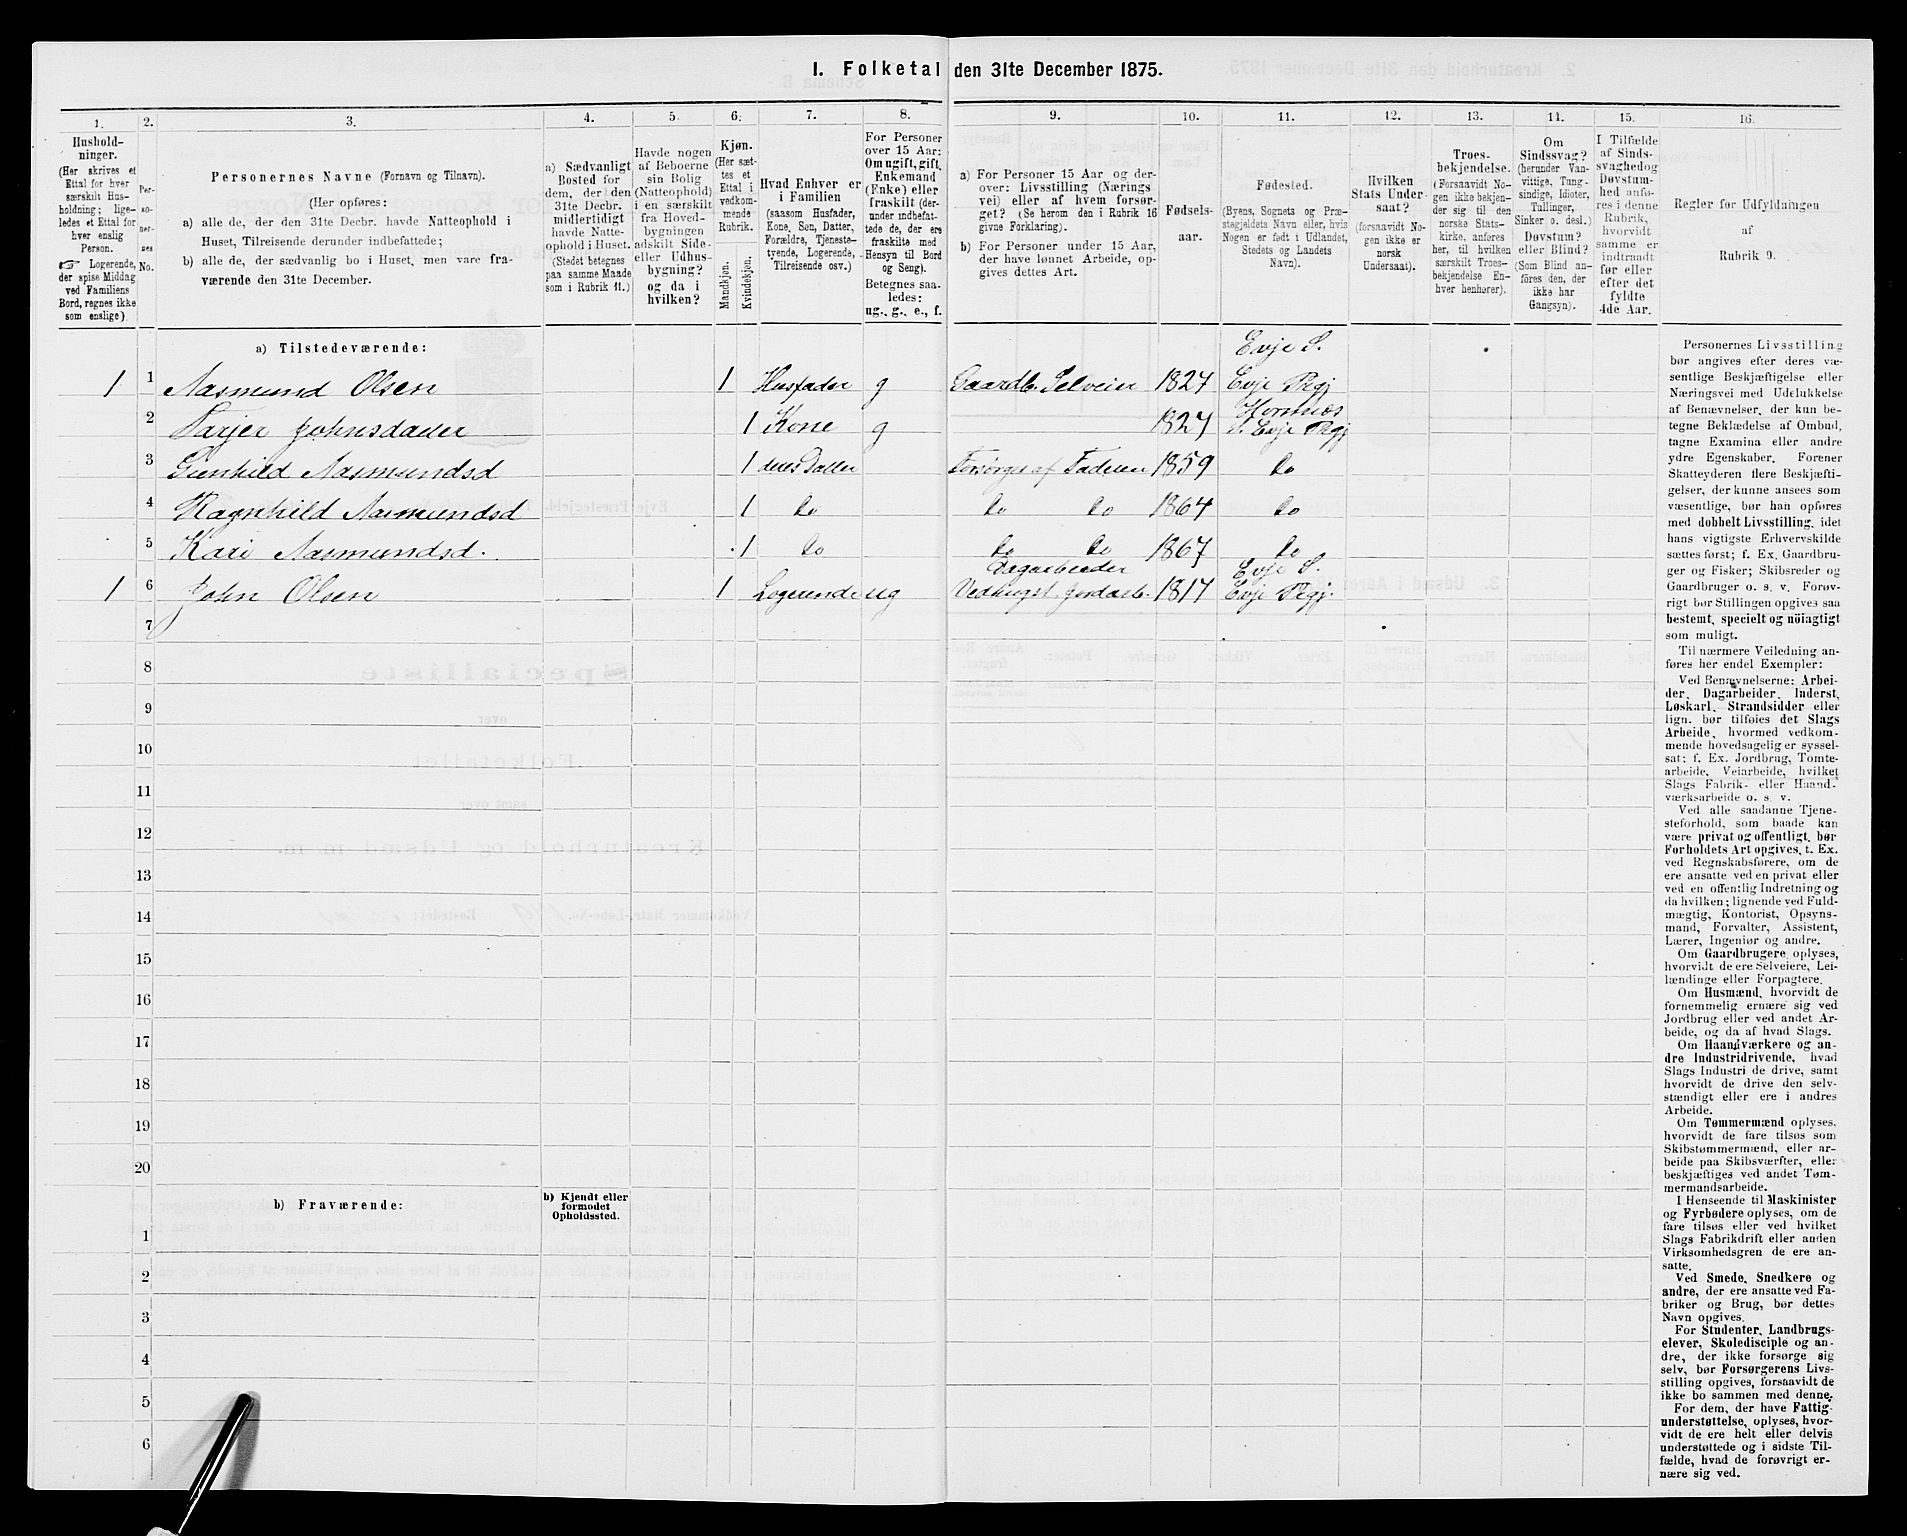 1. Folketal den 31te December 1875.
1. 2. 3. 4. 5. 6. 7. 8. 9. 10. 11. 12. 13. 14. 15. 16.
Hushold-
ninger.
(Her skrives et
Ettal for hver
særskilt Hus-
holdning; lige-
ledes et Ettal for
hver enslig
Person.
☞ Logerende,
der spise Middag
ved Familiens
Bord, regnes ikke
som enslige).
Per-
so-
ner-
nes
No.
Personernes Navne (Fornavn og Tilnavn).
(Her opføres:
a) alle de, der den 31te Decbr. havde Natteophold i
Huset, Tilreisende derunder indbefattede;
b) alle de, der sædvanlig bo i Huset, men vare fra-
værende den 31te December.
a) Sædvanligt
Bosted for
dem, der den
31te Decbr.
midlertidigt
havde Natte-
ophold i Huset.
(Stedet betegnes
paa samme Maade
som i Rubrik 11.)
Havde nogen
af Beboerne
sin Bolig
(Natteophold)
i en særskilt
fra Hoved-
bygningen
adskilt Side-
eller Udhus-
bygning?
og da i
hvilken?
Kjøn.
(Her sæt-
tes et
Ettal i
vedkom-
mende
Rubrik.
Mandkjøn.
Kvindekjøn.
Hvad Enhver er
i Familien
(saasom Husfader,
Kone, Søn, Datter,
Forældre, Tjeneste-
tyende, Logerende,
Tilreisende osv.)
For Personer
over 15 Aar:
Om ugift, gift,
Enkemand
(Enke) eller
fraskilt (der-
under indbefat-
tede de, der ere
fraskilte med
Hensyn til Bord
og Seng).
Betegnes saa-
ledes:
ug., g., e., f.
a) For Personer 15 Aar og der-
over: Livsstilling (Nærings
vei) eller af hvem forsør-
get? (Se herom den i Rubrik 16
givne Forklaring).
b) For Personer under 15 Aar,
der have lønnet Arbeide, op-
gives dettes Art.
Fødsels-
aar.
Fødested.
(Byens, Sognets og Præ-
stegjeldets Navn eller, hvis
Nogen er født i Udlandet,
Stedets og Landets
Navn).
Hvilken
Stats Under-
saat?
(forsaavidt No-
gen ikke er
norsk
Undersaat).
Troes-
bekjendelse.
(Forsaavidt No-
gen ikke bekjen-
der sig til den
norske Stats-
kirke, anføres
her, til hvilken
særskilt Troes-
bekjendelse En-
hver henhører).
Om
Sindssvag?
(herunder Van-
vittige, Tung-
sindige, Idioter,
Tullinger,
Sinker o. desl.)
Døvstum?
eller Blind?
(Som Blind an-
føres den, der
ikke har
Gangsyn).
I Tilfælde
af Sinds-
svaghed og
Døvstum-
hed anfø-
res i denne
Rubrik,
hvorvidt
samme er
indtraadt
før eller
efter det
fyldte
4de Aar.
Regler for Udfyldningen
af
Rubrik 9.
a) Tilstedeværende:
Evje S.
1 1 Aasmund Olsen 1 Husfader g Gaardb. Selveier 1827 Evje Prgj
Hornnes
2 Tarjer Johnsdatter 1 Kone g 1827 S. Evje Prgj
3 Gunhild Aasmundsd 1 deres Datter Forsørges af Faderen 1859 do
4 Ragnhild Aasmundsd 1 do do do 1864 do
5 Kari Aasmundsd. 1 do do do 1867 do
Dagarbeider Evje S.
1 6 John Olsen 1 Logerende ug Vedhugst Jordarb. 1817 Evje Prgj.
7
8
9
10
11
12
13
14
15
16
17
18
19
20
b) Fraværende:
b) Kjendt eller
formodet
Opholdssted.
1
2
3
4
5
6
Personernes Livsstilling
bør angives efter deres væ-
sentlige Beskjæftigelse eller
Næringsvei med Udelukkelse
af Benævnelser, der kun be-
tegne Beklædelse af Ombud,
tagne Examina eller andre
ydre Egenskaber. Forener
Skatteyderen flere Beskjæfti-
gelser, der kunne ansees som
væsentlige, bør han opføres
med dobbelt Livsstilling, idet
hans vigtigste Erhvervskilde
sættes først; f. Ex. Gaardbru-
ger og Fisker; Skibsreder og
Gaardbruger o. s. v. Forøv-
rigt bør Stillingen opgives saa
bestemt, specielt og nöiagtigt
som muligt.
Til nærmere Veiledning an-
føres her endel Exempler:
Ved Benævnelserne: Arbei-
der, Dagarbeider, Inderst,
Løskarl, Strandsidder eller
lign. bør tilføies det Slags
Arbeide, hvormed vedkom-
mende hovedsagelig er syssel-
sat; f. Ex. Jordbrug, Tomte-
arbeide, Veiarbeide, hvilket
Slags Fabrik- eller Haand-
værksarbeide o. s. v.
Ved alle saadanne Tjene-
steforhold, som baade kan
være privat og offentligt, bør
Forholdets Art opgives, t. Ex.
ved Regnskabsførere, om de
ere ansatte ved en privat eller
ved en offentlig Indretning og
da hvilken; lignende ved Fuld-
mægtig, Kontorist, Opsyns-
mand, Forvalter, Assistent,
Lærer, Ingeniør og andre.
Om Gaardbrugere oplyses,
hvorvidt de ere Selveiere, Lei-
lændinge eller Forpagtere.
Om Husmænd, hvorvidt de
fornemmelig ernære sig ved
Jordbrug eller ved andet Ar-
beide, og da af hvad Slags.
Om Haandværkere og an-
dre Industridrivende, hvad
Slags Industri de drive, samt
hvorvidt de drive den selv-
stændigt eller ere i andres
Arbeide.
Om Tømmermænd oplyses,
hvorvidt de fare tilsøs som
Skibstømmermænd, eller ar-
beide paa Skibsværfter, eller
beskjæftiges ved andet Tøm-
mermandsarbeide.
I Henseende til Maskinister
og Fyrbødere oplyses, om de
fare tilsøs eller ved hvilket
Slags Fabrikdrift eller anden
Virksomhedsgren de ere an-
satte.
Ved Smede, Snedkere og
andre, der ere ansatte ved Fa-
briker og Brug, bør dettes
Navn opgives.
For Studenter, Landbrugs-
elever, Skoledisciple og an-
dre, der ikke forsørge sig
selv, bør Forsørgerens Livs-
stilling opgives, forsaavidt de
ikke bo sammen med denne.
For dem, der have Fattig-
understøttelse, oplyses, hvor-
vidt de ere helt eller delvis
understøttede og i sidste Til-
fælde, hvad de forøvrigt er-
nære sig ved.